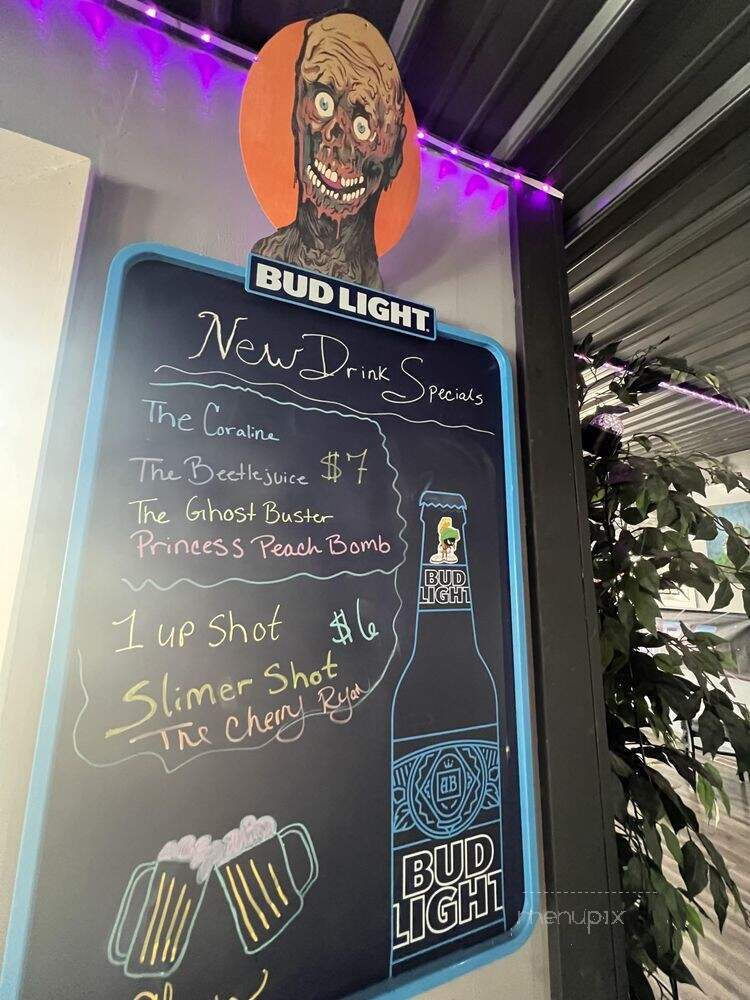 BUD LIGHT
New Drink Specials
The Coraline
The Beetlejuice $7
The Ghost Buster
Princess Peach Bomb
1 up shot $6
Slimer Shot
The Cherry Ryan
BUD
LIGHT
BUD
LIGHT
menupix